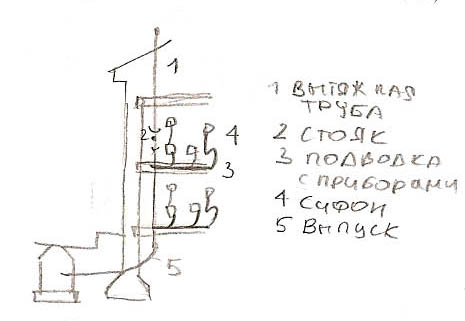 1
2
4
3
5
1 ВЫТЯЖНАЯ
ТРУБА
2 СТОЯК
3 ПОДВОДКА
С ПРИБОРАМИ
4 СИФОН
5 ВЫПУСК